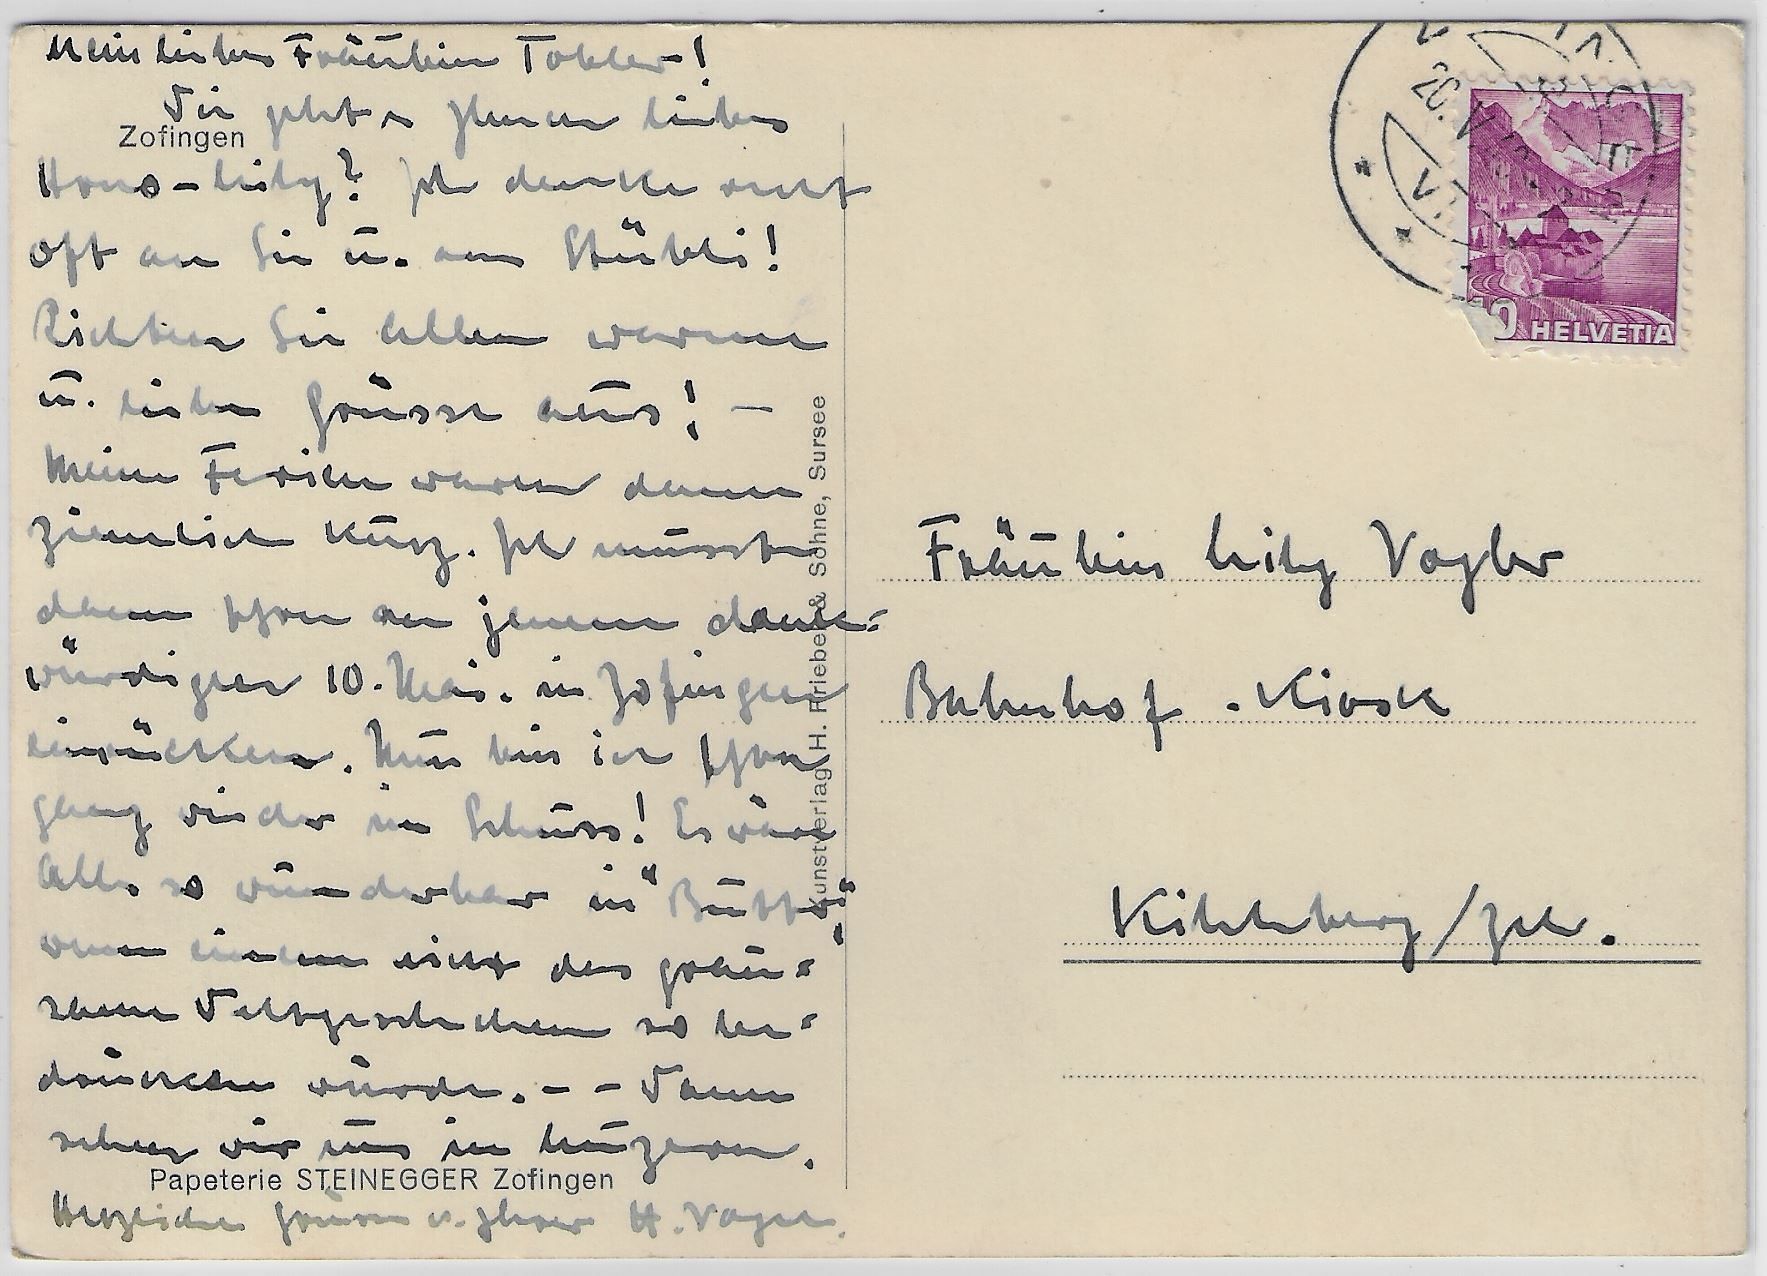 Mein liebes Fräulein Tobler!
Wie geht es Ihnen liebes
Zofingen
Haus-Lily? Ich denke recht
oft an Sie u. ans Stübli!
Richten Sie Allen warme
u. liebe Grüsse aus! –
Meine Ferien waren dann
ziemlich kurz. Ich musste
dann schon an jenem denk-
würdigen 10. Mai. in Zofingen
einrücken. Nun bin ich schon
ganz wieder im Schuss! Es wäre
Alles so wunderbar in
wenn einem nicht das grau-
same Weltgeschehen so be-
drücken würde. – – Wann
sehen wir uns in Luzern.
Papeterie STEINEGGER Zofingen
Herzliche Grüsse v. Ihrer H. Vogel.
Kunstverlag H. Friebel & Söhne, Sursee
20. V.
10 HELVETIA
Fräulein Lily Vogler
Bahnhof-Kiosk
Kilchberg/Zch.